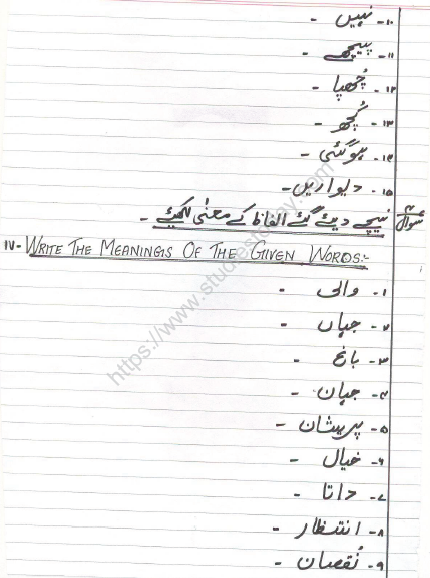 ۱۰۔ نہیں ۔
۱۱۔ پیچھے ۔
۱۲۔ چُھپا ۔
۱۳۔ کُچھ ۔
۱۴۔ ہوگئی ۔
۱۵۔ دیواریں۔
سوال ۴ نیچے دیئے گئے الفاظ کے معنٰی لکھیئے ۔
IV- WRITE THE MEANINGS OF THE GIVEN WORDS:-
۱۔ والی ۔
۲۔ جہاں ۔
۳۔ باغ ۔
۴۔ جہان ۔
۵۔ پریشان ۔
۶۔ خیال ۔
۷۔ داتا ۔
۸۔ انتظار ۔
۹۔ نُقصان ۔
https://www.studiestoday.com